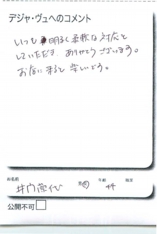 デジャ・ヴュへのコメント
いつも明るく柔軟な対応を
していただき ありがとうございます。
お店に来ると楽しいです。
お名前
年齢
公開不可